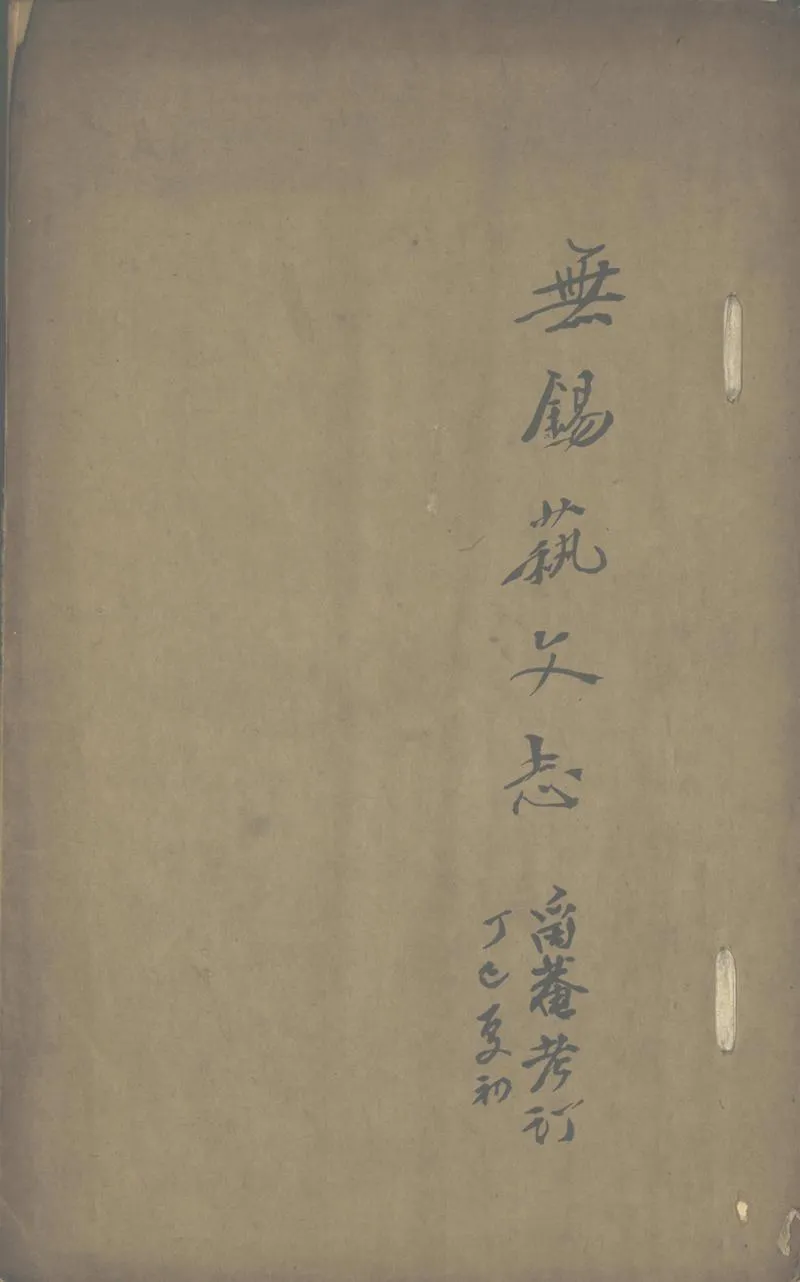 無錫藝文志
甬菴考訂
丁巳夏初